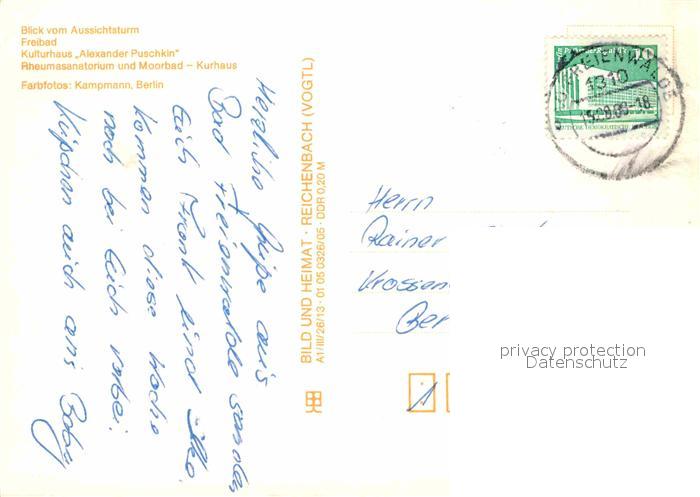 Blick vom Aussichtsturm
Freibad
Kulturhaus „Alexander Puschkin"
Rheumasanatorium und Moorbad – Kurhaus
Farbfotos: Kampmann, Berlin
Herzliche Grüße aus
Bad Freienwalde
Euch Frank und
kommen diese Woche
noch bei Euch vorbei.
auch ans Baby
BILD UND HEIMAT · REICHENBACH (VOGTL)
A1/III/26/13 · 01 05 0326/05 · DDR 0,20 M
FREIENWALDE
1310
Herrn
Rainer
Krossen
Ber
1
privacy protection
Datenschutz